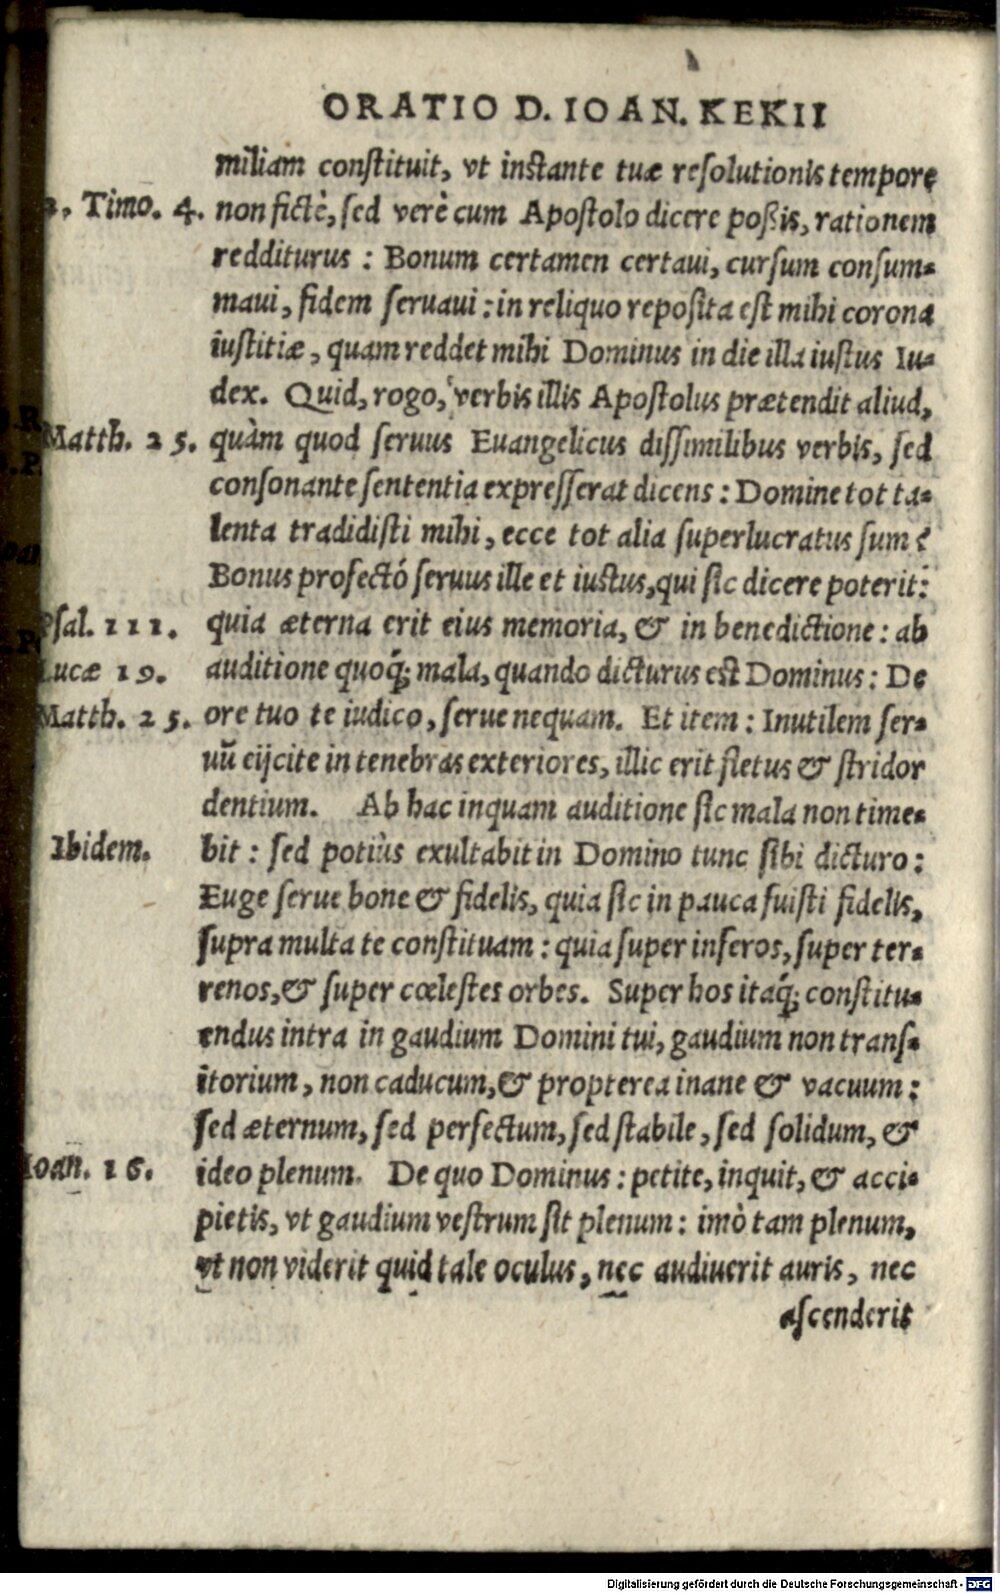 ORATIO D. IOAN. KEKII
miliam constituit, vt instante tuæ resolutionis tempore
2. Timo. 4. non fictè, sed verè cum Apostolo dicere poßis, rationem
redditurus : Bonum certamen certaui, cursum consum-
maui, fidem seruaui : in reliquo reposita est mihi corona
iustitiæ, quam reddet mihi Dominus in die illa iustus Iu-
dex. Quid, rogo, verbis illis Apostolus prætendit aliud,
Matth. 25. quàm quod seruus Euangelicus dissimilibus verbis, sed
consonante sententia expresserat dicens : Domine tot ta-
lenta tradidisti mihi, ecce tot alia superlucratus sum ?
Bonus profectó seruus ille et iustus, qui sic dicere poterit:
Psal. 111. quia æterna erit eius memoria, & in benedictione : ab
Lucæ 19. auditione quoq́; mala, quando dicturus est Dominus : De
Matth. 25. ore tuo te iudico, serue nequam. Et item : Inutilem ser-
uũ eijcite in tenebras exteriores, illic erit fletus & stridor
dentium. Ab hac inquam auditione sic mala non time-
Ibidem. bit : sed potiùs exultabit in Domino tunc sibi dicturo :
Euge serue bone & fidelis, quia sic in pauca fuisti fidelis,
supra multa te constituam : quia super inferos, super ter-
renos, & super cœlestes orbes. Super hos itaq́; constitu-
endus intra in gaudium Domini tui, gaudium non trans-
itorium, non caducum, & propterea inane & vacuum :
sed æternum, sed perfectum, sed stabile, sed solidum, &
Ioan. 16. ideo plenum. De quo Dominus : petite, inquit, & acci-
pietis, vt gaudium vestrum sit plenum : imò tam plenum,
vt non viderit quid tale oculus, nec audiuerit auris, nec
ascenderit
Digitalisierung gefördert durch die Deutsche Forschungsgemeinschaft - DFG